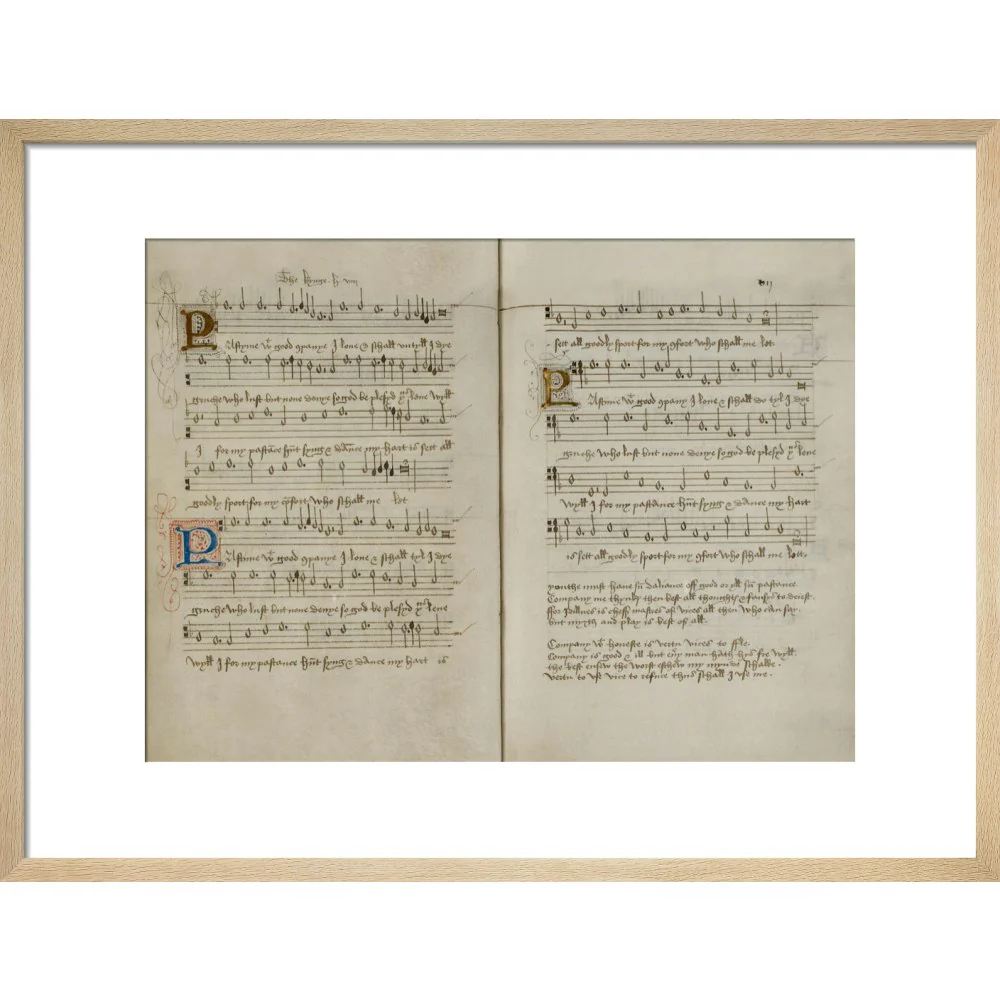 The kynge h viii
Pastyme wt good companye I love & schall untyll I dye
gruche who lust but none denye so god be plesyd thus leve wyll
I for my pastance hunt syng & dance my hart is sett all
goodly sport for my comfort who schall me let
Pastyme wt good companye I love & schall tyl I dye
gruche who lust but none denye so god be plesyd thus leve
wyll I for my pastance hunt syng & dance my hart is
sett all goodly sport for my comfort who schall me let
Pastyme wt good company I love & schall do tyl I dye
gruche who lust but none denye so god be plesyd thus leve
wyll I for my pastance hunt syng & dance my hart
is sett all goodly sport for my comfort who schall me lett
youthe must have sum daliance off good or yll sum pastance
Company me thynks then best all thoughts & fansys to deiest
ffor Idillnes is cheff mastres of vices all then who can say.
but myrth and play is best of all.
Company wt honeste is vertu vices to ffle.
Company is good & ill but every man hath hys fre wyll.
the best ensew the worst eschew my mynde schalbe.
vertu to use vice to refuce thus schall I use me.